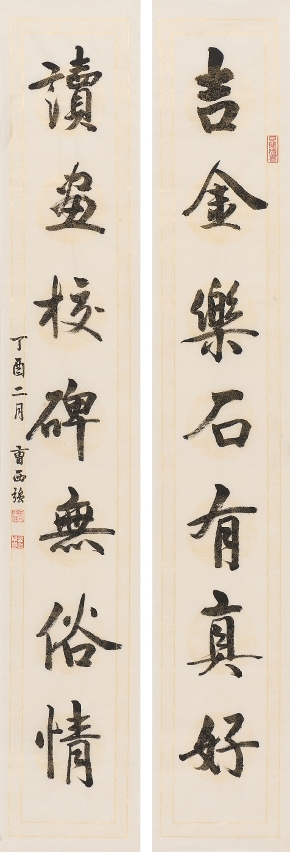 吉金樂石有真好
讀畫校碑無俗情
丁酉二月 曹西強